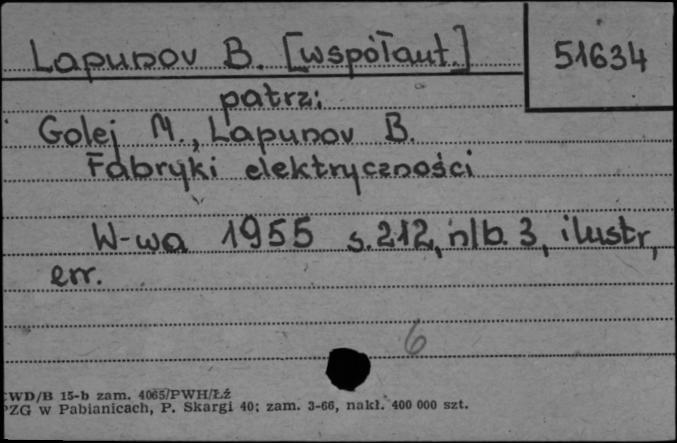 Lapunov B. [współaut.]
51634
patrz:
Golej M., Lapunov B.
Fabryki elektryczności
W-wa 1955 s. 212, nlb. 3, ilustr,
err.
6
WD/B 15-b zam. 4065/PWH/Łź
PZG w Pabianicach, P. Skargi 40; zam. 3-66, nakł. 400 000 szt.